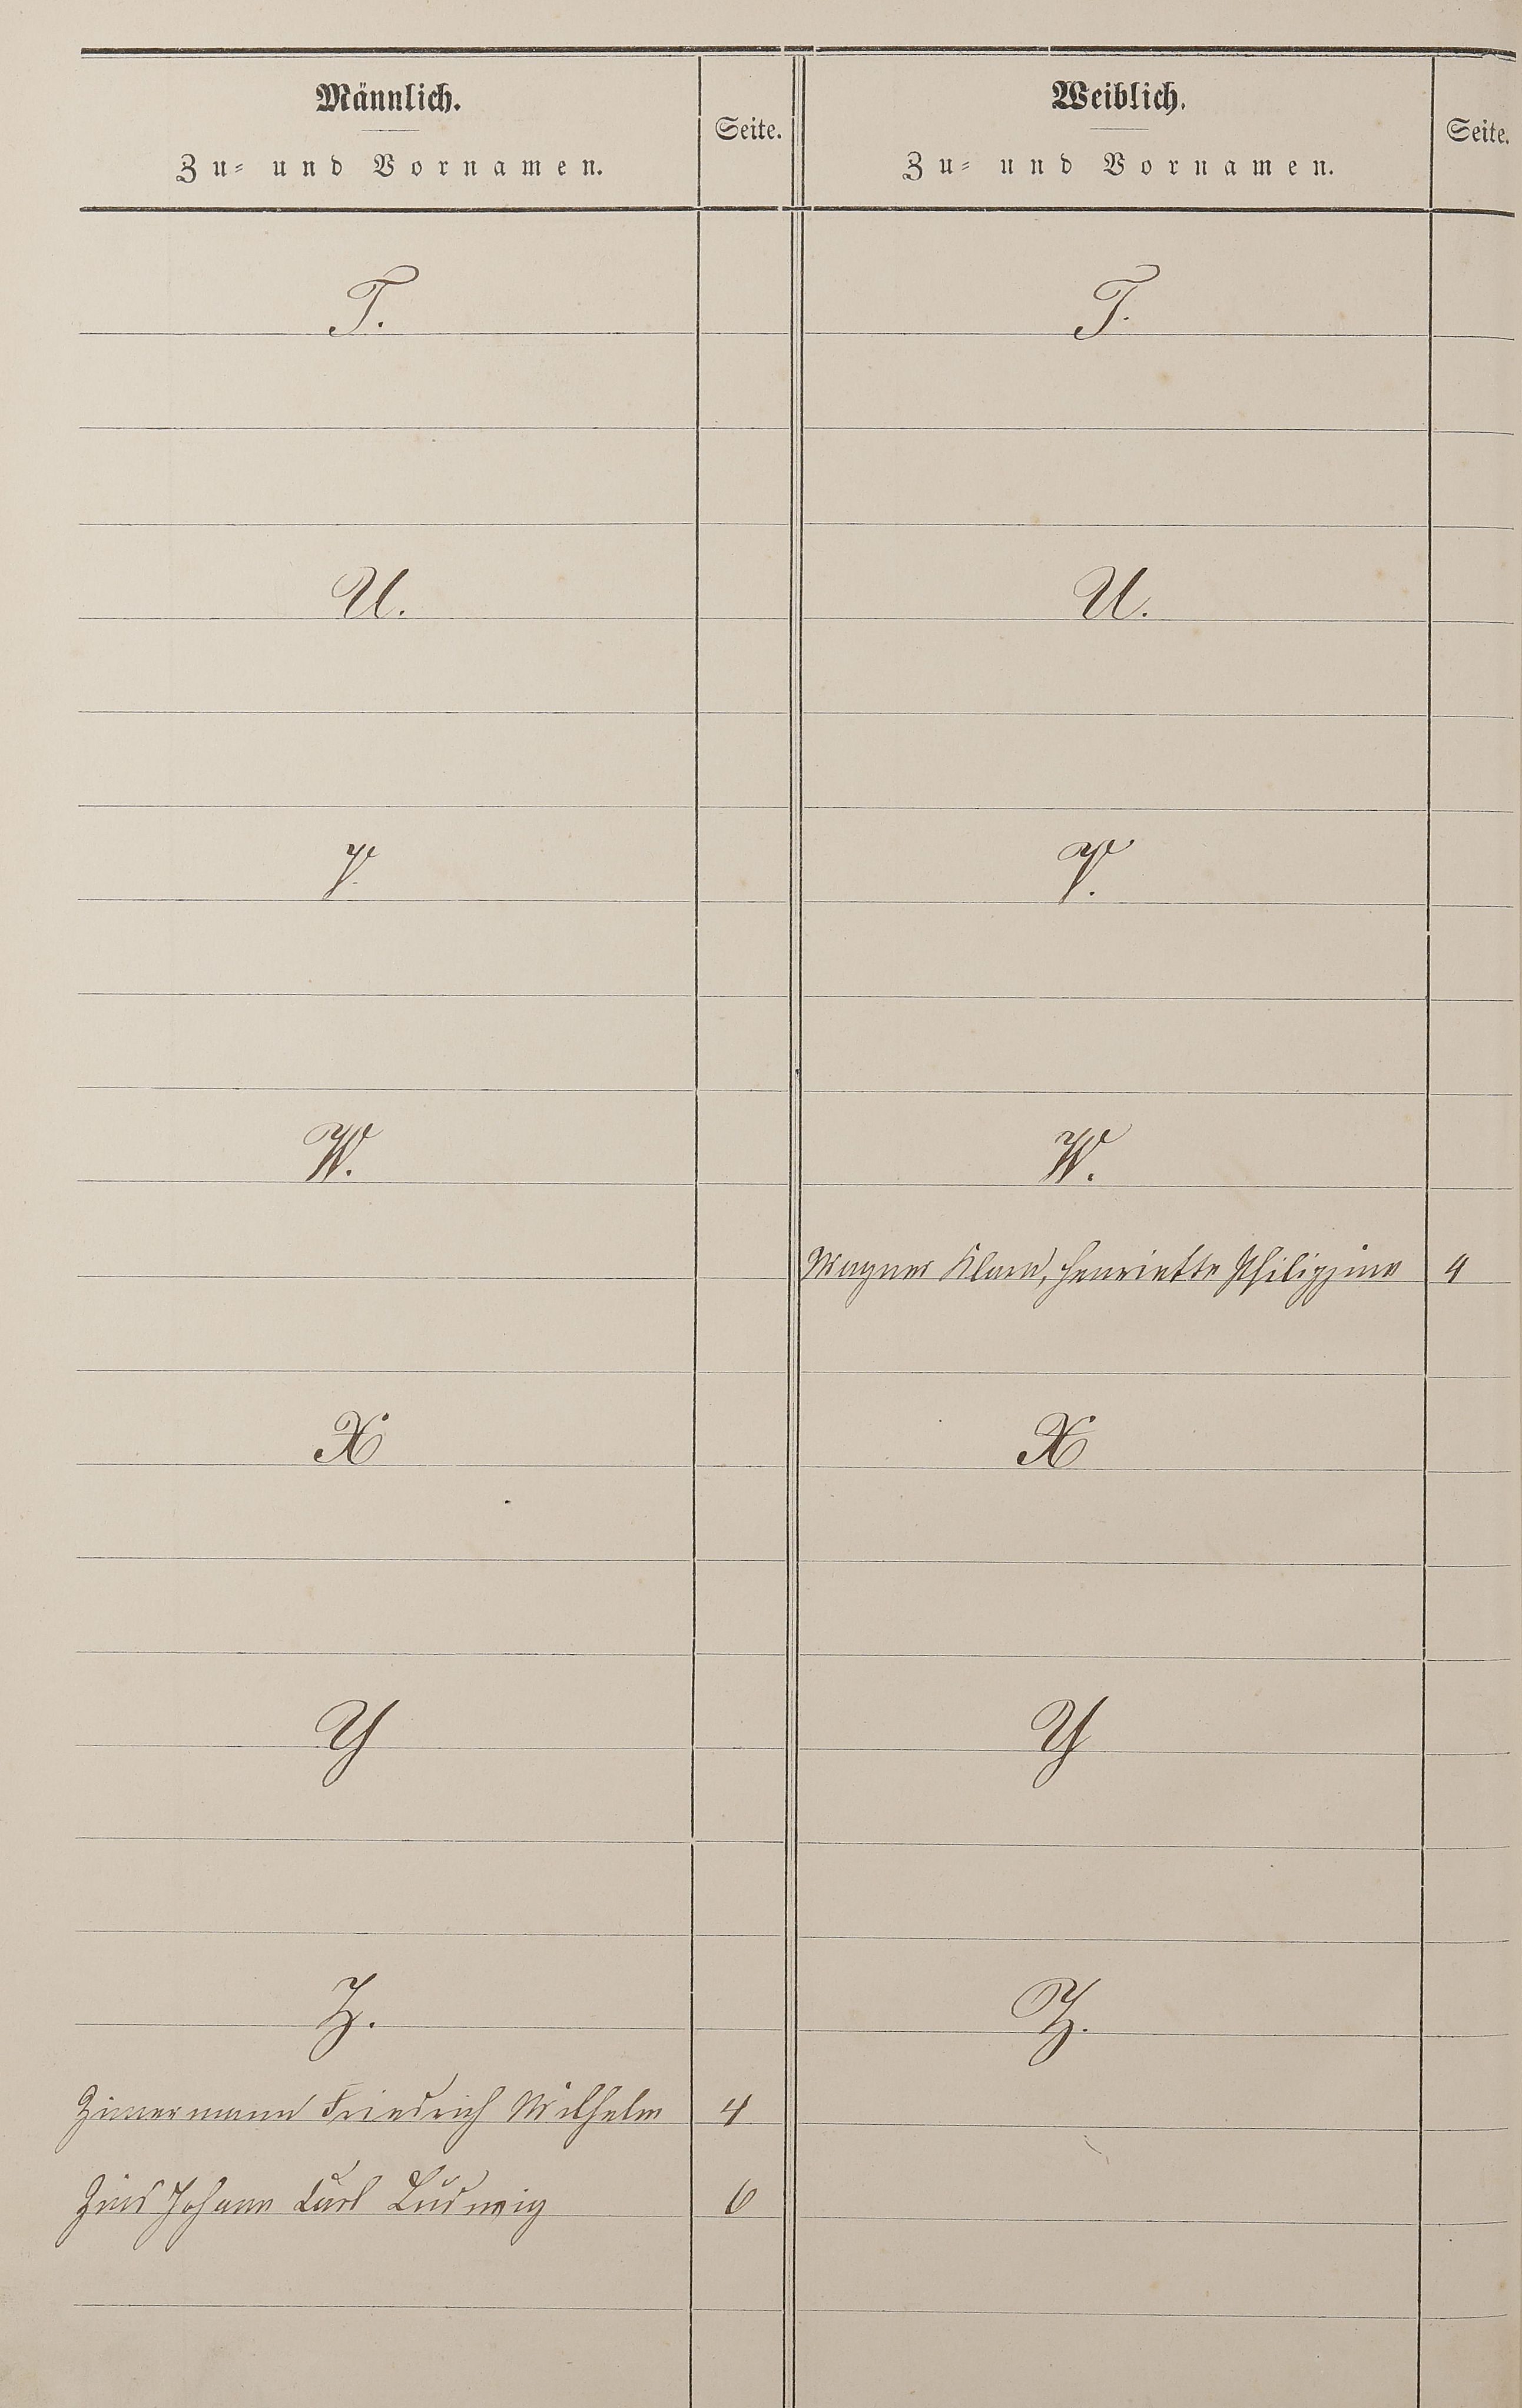 Männlich.
Zu- und Vornamen.
Seite.
Weiblich.
Zu- und Vornamen.
Seite.
T.
T.
U.
U.
V.
V.
W.
W.
Wagner Klara, Henriette Philippine 4
X
X
Y
Y
Z.
Z.
Zimermann Friedrich Wilhelm 4
Johann Carl Ludwig 6